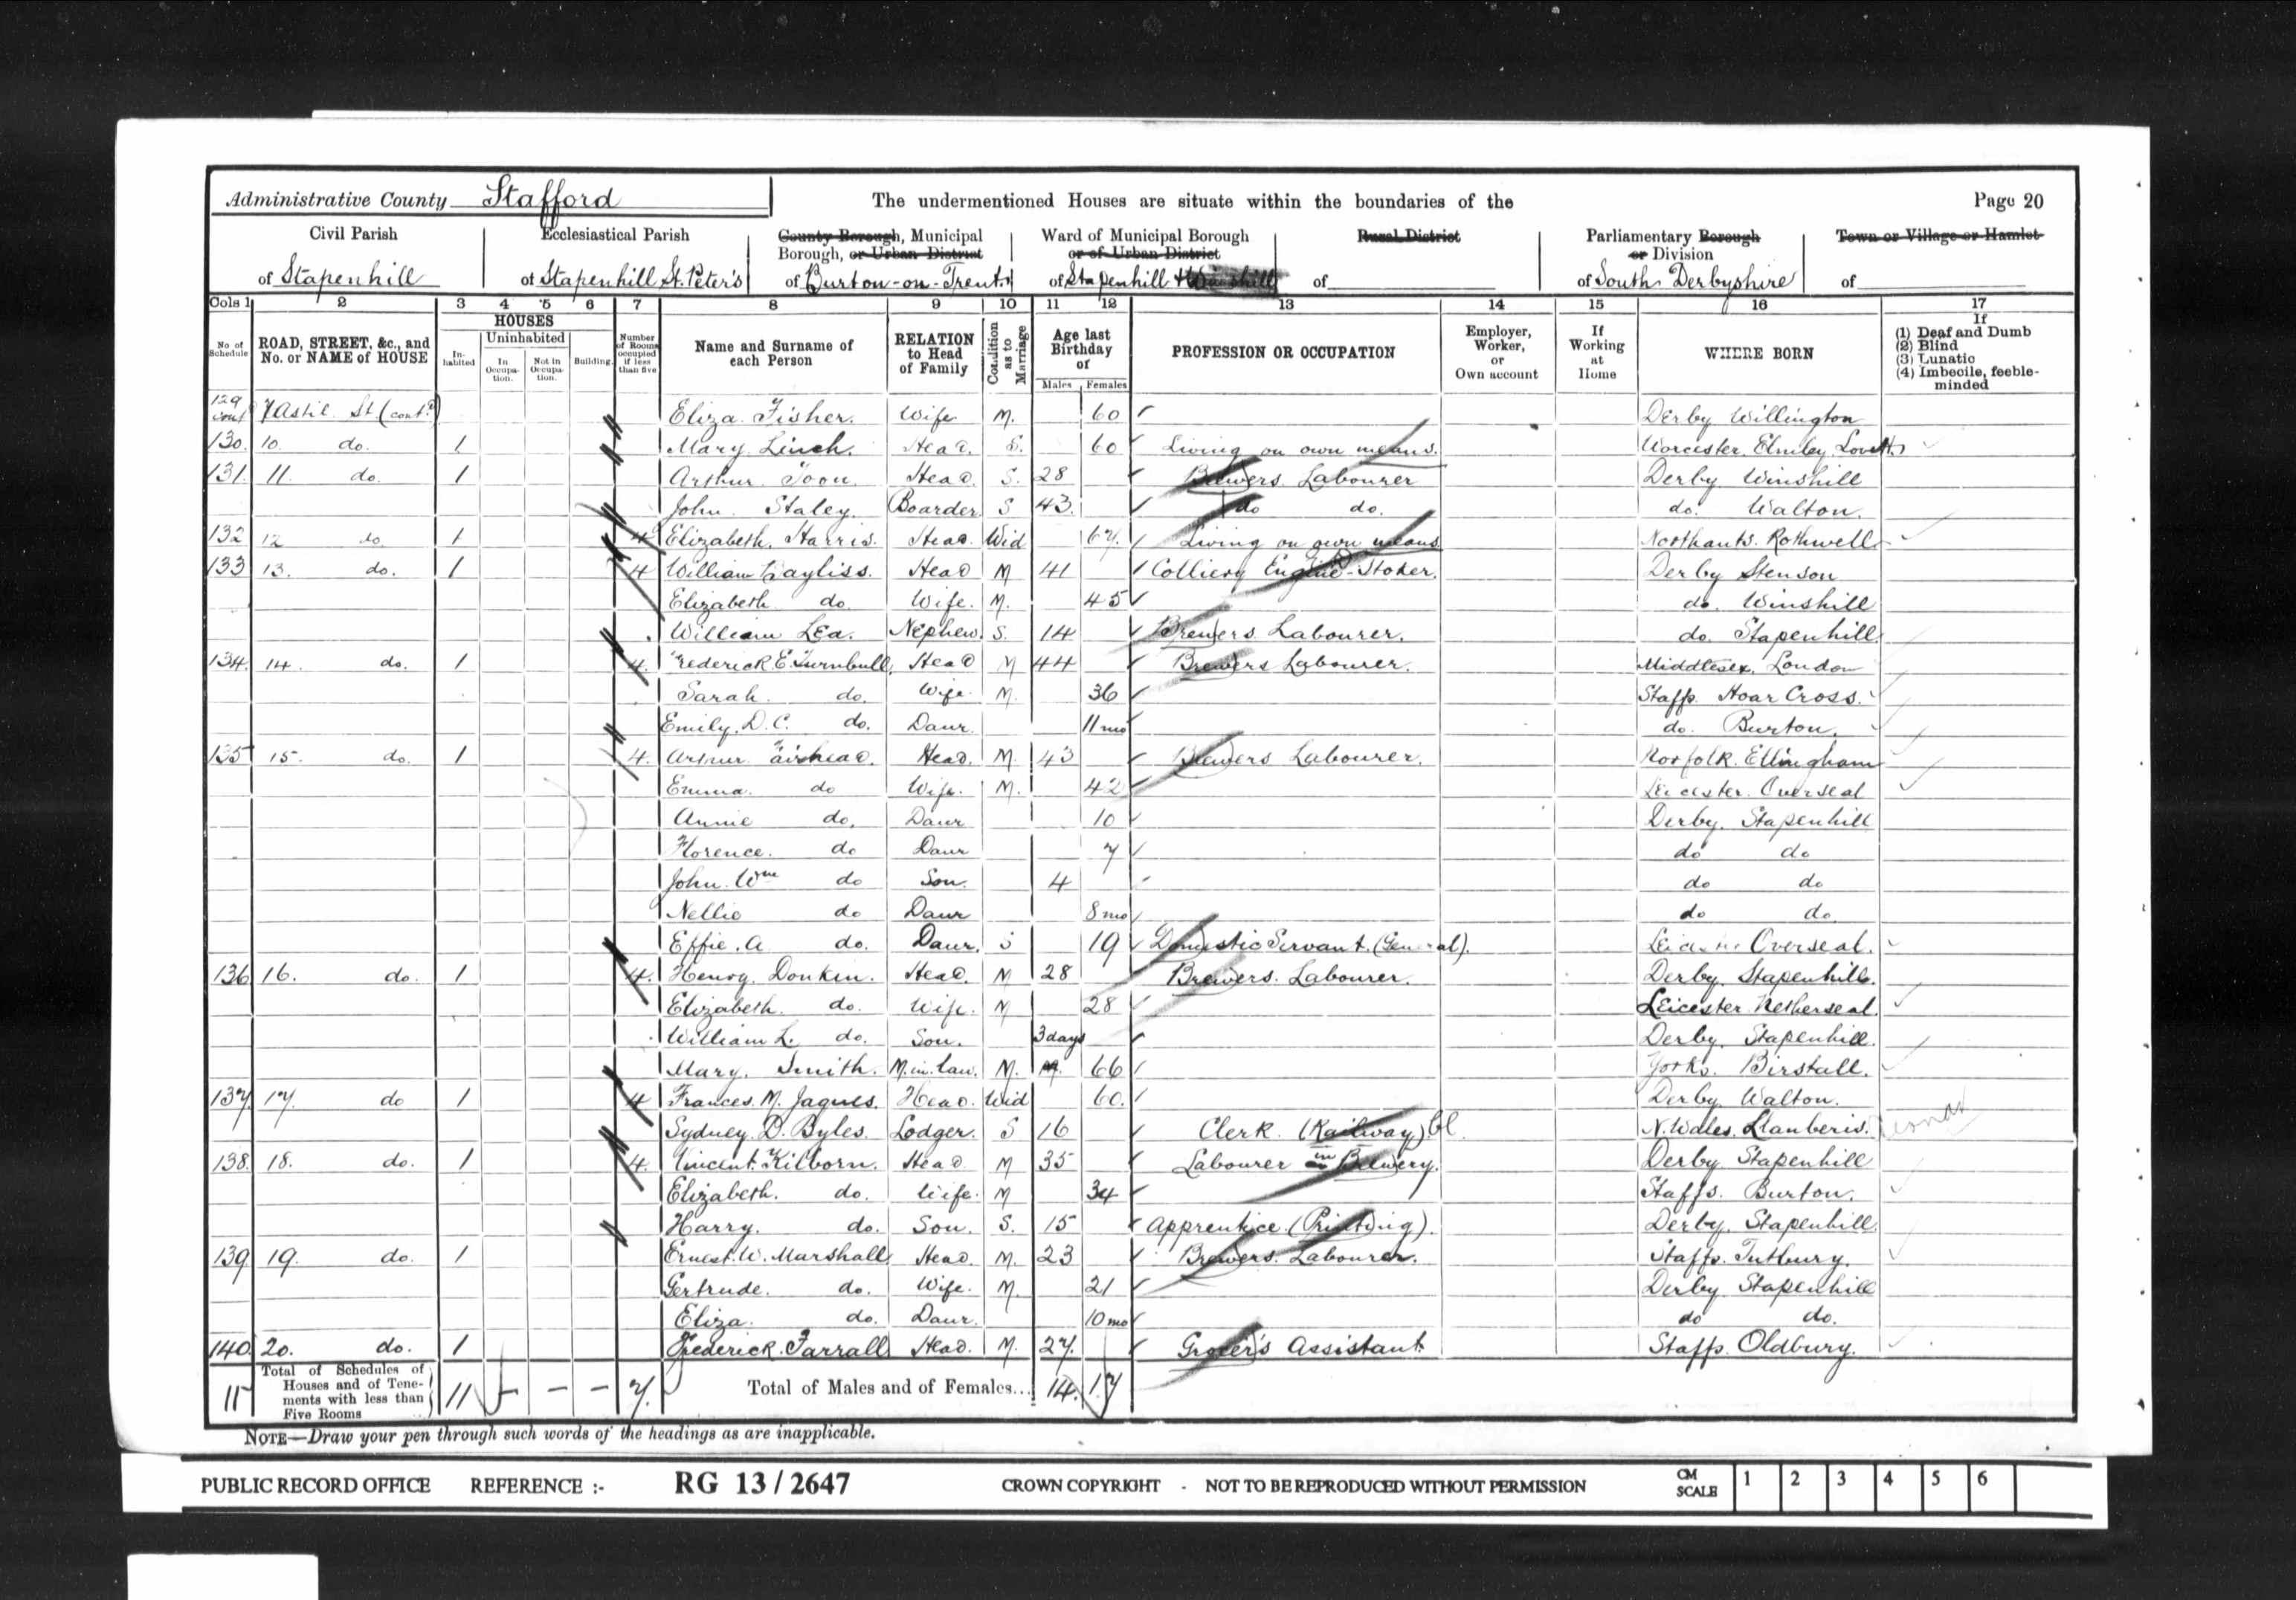 Administrative County Stafford The undermentioned Houses are situate within the boundaries of the Page 20
Civil Parish Ecclesiastical Parish County Borough, Municipal Ward of Municipal Borough Rural District Parliamentary Borough Town or Village or Hamlet
Borough, or Urban District or of Urban District or Division
of Stapenhill of Stapenhill St. Peter's of Burton-on-Trent of Stapenhill + Winshill of of South Derbyshire of
Cols 1 2 3 4 5 6 7 8 9 10 11 12 13 14 15 16 17
No of Schedule ROAD, STREET, &c., and No. or NAME of HOUSE HOUSES Inhabited Uninhabited In Occupation. Not in Occupation. Building. Number of Rooms occupied if less than five Name and Surname of each Person RELATION to Head of Family Condition as to Marriage Age last Birthday of Males Females PROFESSION OR OCCUPATION Employer, Worker, or Own account If Working at Home WHERE BORN If (1) Deaf and Dumb (2) Blind (3) Lunatic (4) Imbecile, feeble-minded
129 cont 7 Astil St (cont.d) Eliza Fisher. Wife M. 60 Derby Willington
130. 10. do. 1 Mary Linch. Head. S. 60 Living on own means. Worcester. Elmley Lovett
131. 11. do. 1 Arthur Toon. Head S. 28 Brewers Labourer Derby Winshill
John Staley. Boarder S 43. do do. do. Walton.
132 12 do 1 4 Elizabeth. Harris. Head. Wid 67. Living on own means Northants. Rothwell
133 13. do. 1 4 William Bayliss. Head M 41 Colliery Engine-Stoker. Derby Stenson
Elizabeth do. Wife. M. 45 do. Winshill
William Lea. Nephew. S. 14 Brewers Labourer. do. Stapenhill.
134. 14. do. 1 4. Frederick E. Turnbull. Head M 44 Brewers Labourer. Middlesex. London
Sarah. do. Wife. M. 36 Staffs. Hoar Cross.
Emily. D. C. do. Daur. 11 mo do. Burton.
135 15. do. 1 4. Arthur Fairhead. Head. M. 43 Brewers Labourer. Norfolk. Ellingham
Emma. do Wife. M. 42 Leicester. Overseal
Annie do. Daur 10 Derby. Stapenhill
Florence. do Daur 7 do do
John. Wm do Son. 4 do do
Nellie do Daur 8 mo do do.
Effie. A do. Daur. S 19 Domestic Servant. (General). Leicester Overseal.
136 16. do. 1 4. Henry Donkin. Head. M 28 Brewers. Labourer. Derby. Stapenhill.
Elizabeth. do. Wife. M 28 Leicester Netherseal.
William L. do. Son. 3 days Derby. Stapenhill.
Mary. Smith. M. in. law. M. 66 Yorks. Birstall.
137. 17. do 1 4 Frances. M. Jaques. Head. Wid 60. Derby. Walton.
Sydney. D. Byles. Lodger. S 16 Clerk. (Railway) Cl. N. Wales. Llanberis.
138. 18. do. 1 4. Vincent. Kilborn. Head M 35 Labourer in Brewery. Derby Stapenhill
Elizabeth. do. Wife. M 34 Staffs. Burton.
Harry. do. Son. S. 15 Apprentice. (Printing). Derby. Stapenhill
139 19. do. 1 Ernest. W. Marshall Head. M. 23 Brewers. Labourer. Staffs. Tutbury.
Gertrude. do. Wife. M. 21 Derby Stapenhill
Eliza. do. Daur. 10 mo do do.
140 20. do. 1 Frederick. Farrall Head. M. 27. Grocer's Assistant Staffs. Oldbury.
11 Total of Schedules of Houses and of Tenements with less than Five Rooms 11 - - - 7. Total of Males and of Females... 14. 17
NOTE—Draw your pen through such words of the headings as are inapplicable.
PUBLIC RECORD OFFICE REFERENCE :- RG 13/2647 CROWN COPYRIGHT - NOT TO BE REPRODUCED WITHOUT PERMISSION CM SCALE 1 2 3 4 5 6